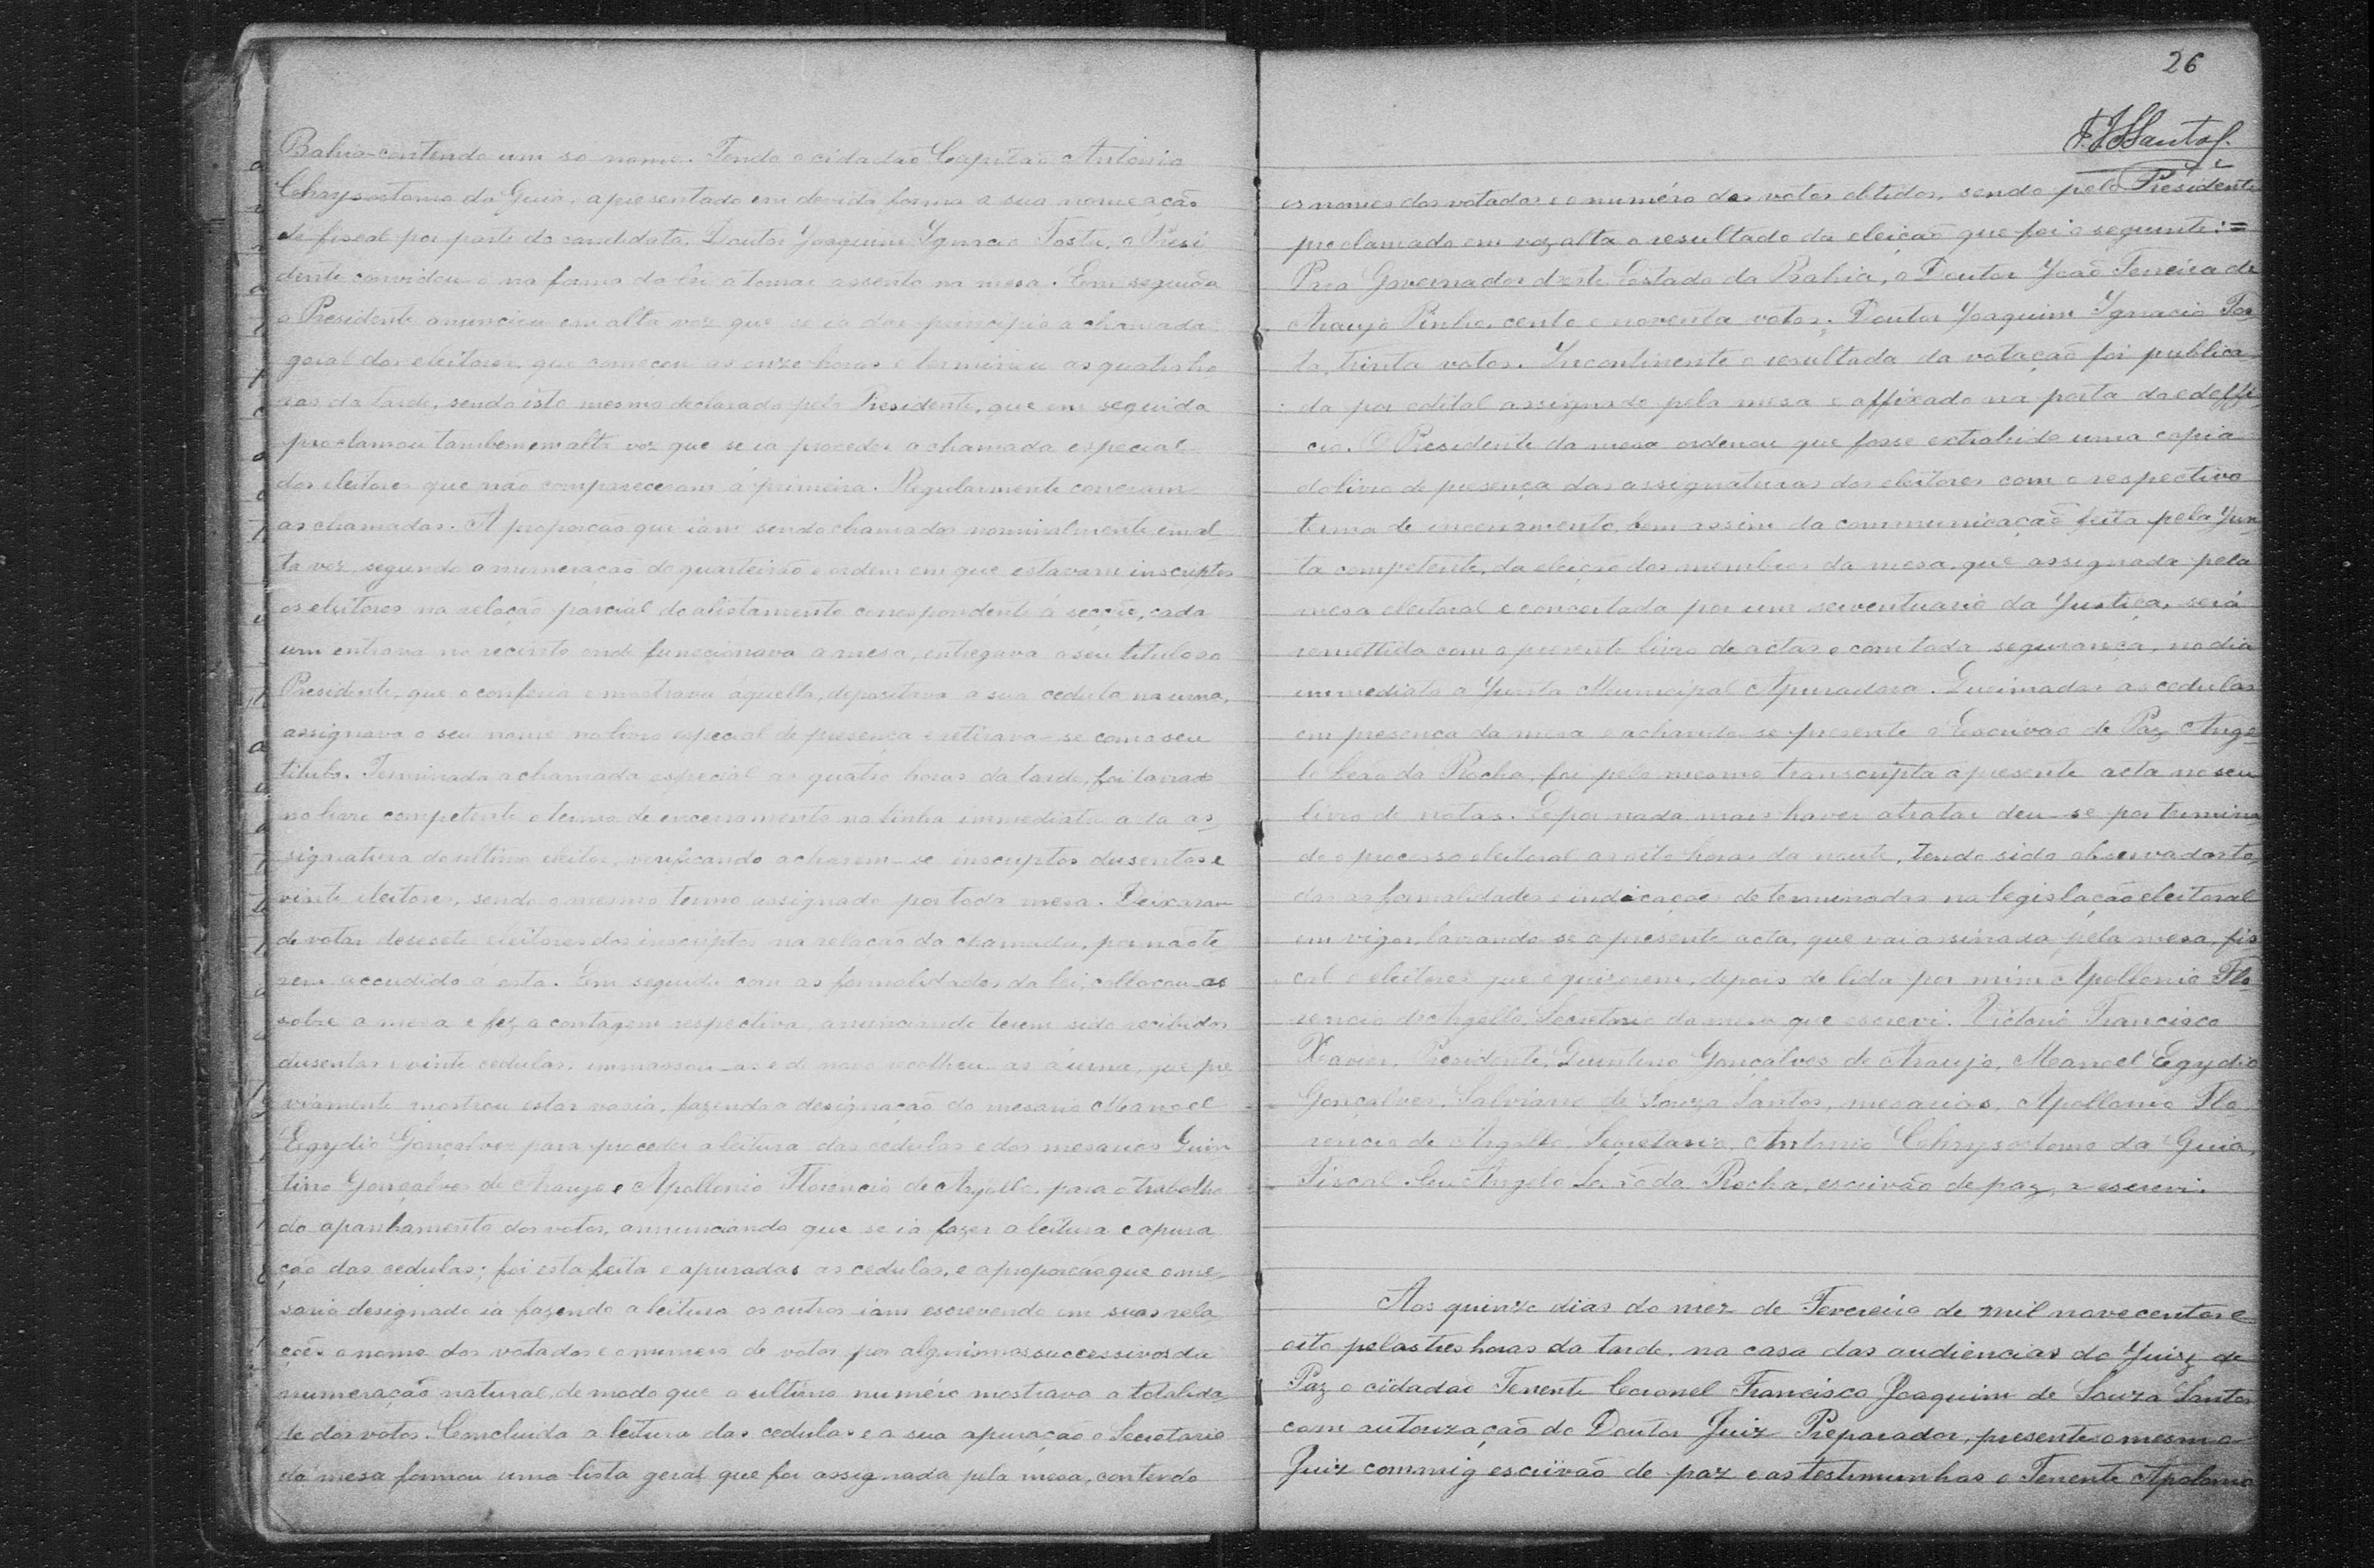 Bahia contendo um so nome. Tendo o cidadão Capitão Antonio
Chrysostomo da Guia, apresentado em devida forma a sua nomeação
de fiscal por parte do candidato Doutor Joaquim Ygnacio Tosta, o Presi
dente convidou-o na forma da lei a tomar assento na mesa. Em seguida
o Presidente anunciou em alta voz que se ia dar principio a chamada
geral dos eleitores que começou as onze horas e terminou as quatro ho
ras da tarde, sendo isto mesmo declarado pelo Presidente, que em seguida
proclamou tambem em alta voz que se ia proceder a chamada especial
dos eleitores que não compareceram á primeira. Regularmente correram
as chamadas. A proporcão que iam sendo chamados nominalmente, em al_
ta voz, segundo a numeração do quarteirão e ordem em que estavam inscriptos
os eleitores na relação parcial do alistamento correspondente á secção, cada
um entrava no recinto onde funccionava a mesa, entregava o seu titulo ao
Presidente, que o conferia e mostrava áquella, depositava a sua cedula na urna,
assignava o seu nome no livro especial de presença e retirava-se com o seu
titulo. Terminada a chamada especial as quatro horas da tarde, foi lavrado
no livro competente o termo de encerramento na linha immediata a da as_
signatura do ultimo eleitor, verificando acharem-se inscriptos dusentos e
vinte eleitores, sendo o mesmo termo assignado por toda mesa. Deixaram
de votar desesete eleitores dos inscriptos na relação da chamada, por não te
rem accudido a esta. Em seguida com as formalidades da lei, collocou-as
sobre a mesa e fez a contagem respectiva, anunciando terem sido recibidas
dusentas e vinte cedulas, emmassou-as e de novo recolheu-as á urna, que pre
viamente mostrou estar vasia, fazendo a designação do mesario Manoel
Egydio Gonçalves para proceder a leitura das cedulas e dos mesarios Quin
tino Gonçalves de Araujo e Apollonio Florencio de Argollo, para o trabalho
do apanhamento dos votos, annunciando que se ia fazer a leitura e apura
ção das cedulas; foi esta feita e apuradas as cedulas, e a proporcão que o me_
sario designado ia fazendo a leitura os outros iam escrevendo em suas rela
ções o nome dos votados e o numero de votos por algarismos successivos da
numeração natural, de modo que o ultimo numéro mostrava a totalida_
de dos votos. Concluida a leitura das cedulas e a sua apuração o Secretario
da mesa formou uma lista geral que foi assignada pela mesa, contendo
26
F. J. S. Santos.
os nomes dos votados e o numéro dos votos obtidos, sendo pelo Presidente
proclamado em voz alta o resultado da eleição que foi o seguinte:=
Para Governador deste Estado da Bahia, o Doutor João Ferreira de
Araujo Pinho, cento e noventa votos; Doutor Joaquim Ygnacio Tos_
ta, trinta votos. Incontinente o resultado da votação foi publica_
do por edital assignado pela mesa e affixado na porta do ediffi_
cio. O Presidente da mesa ordenou que fosse extrahido uma copia
do livro de presença das assignaturas dos eleitores com o respectivo
termo de encerramento, bem assim da communicação feita pela Jun_
ta competente, da eleição dos membros da mesa, que assignada pela
mesa eleitoral e concertada por um serventuario da Justiça, será
remettida com o presente livro de actas e com toda segurança, no dia
immediato a Junta Municipal Apuradora. Queimadas as cedulas
em presença da mesa e achando-se presente o Escrivão de Paz Ange_
lo Leão da Rocha, foi pelo mesmo transcripta a presente acta no seu
livro de notas. E por nada mais haver a tratar deu-se por termina_
do o processo eleitoral as oito horas da noute, tendo sido observadas to_
das as formalidades e indicações determinadas na legislação eleitoral
em vigor, lavrando se a presente acta, que vai assinada pela mesa, fis_
cal e eleitores que o quizerem, depois de lida por mim Apollonio Flo_
rencio de Argollo, Secretario da mesa que escrevi. Victorio Francisco
Xavier, Presidente, Quintino Gonçalves de Araujo, Manoel Egydio
Gonçalves, Salviano de Souza Santos, mesarios, Apollonio Flo_
rencio de Argollo, Secretario, Antonio Chrysostomo da Guia,
Fiscal. Eu Angelo Leão da Rocha, escrivão de paz, o escrevi.
Aos quinze dias do mez de Fevereiro de mil novecentos e
oito pelas tres horas da tarde, na casa das audiencias do Juiz de
Paz o cidadão Tenente Coronel Francisco Joaquim de Souza Santos
com autorização do Doutor Juiz Preparador, presente o mesmo
Juiz commig escrivão de paz e as testimunhas o Tenente Apolonio